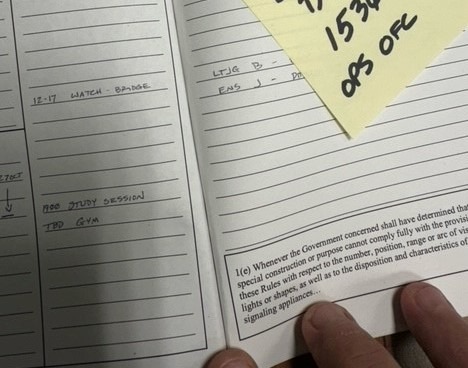 1530
OPS OFC
LTJG B -
ENS J -
12-17 WATCH - BRIDGE
STUDY SESSION
TBD GYM
1(e) Whenever the Government concerned shall have determined that
special construction or purpose cannot comply fully with the
these Rules with respect to the number, position, range or arc of
lights or shapes, as well as to the disposition and characteristics of
signaling appliances...